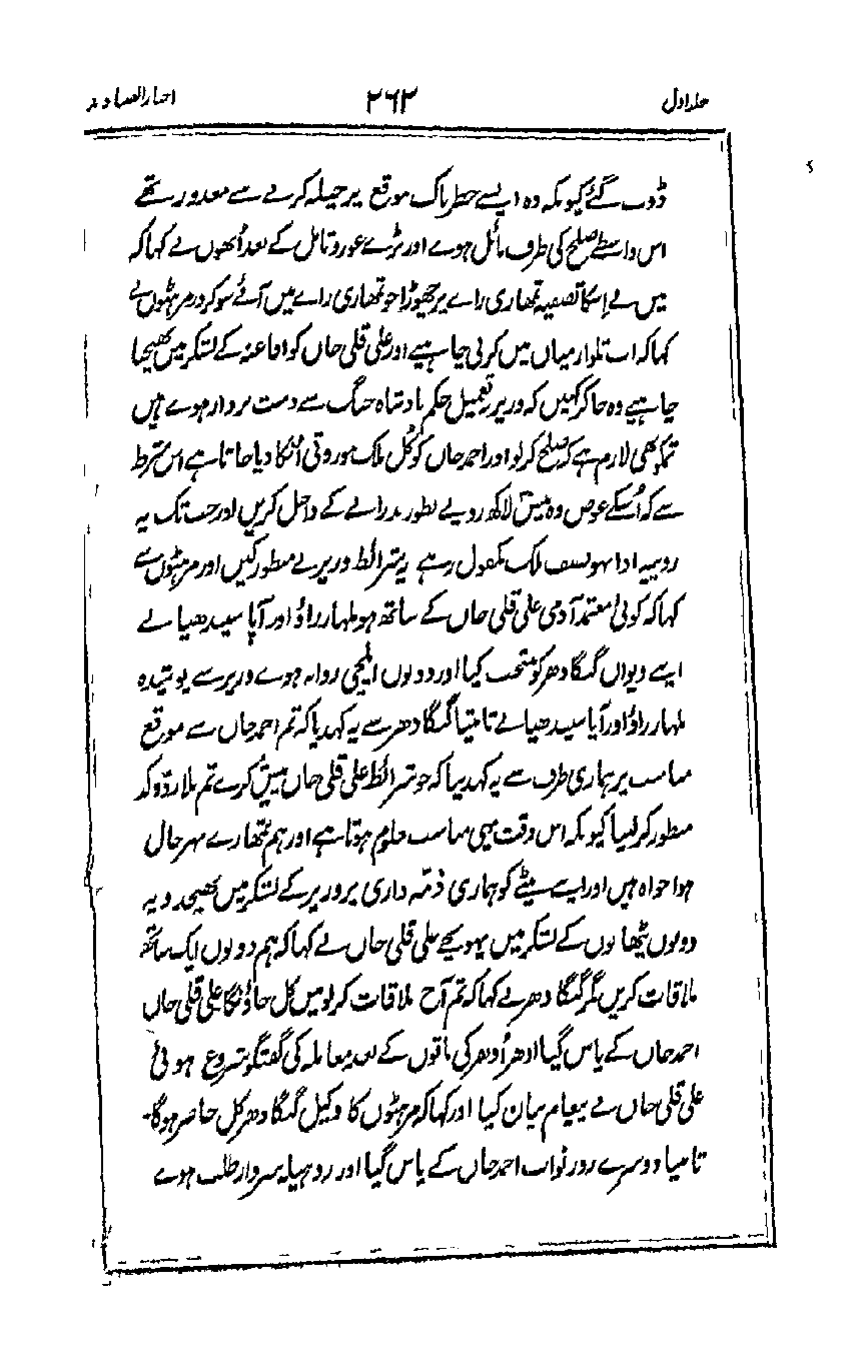 جلد اول ۲۶۲ اخبار الصنادید
ڈوب گئے کیونکہ وہ ایسے خطرناک موقع پر حیلہ کرنے سے معذور تھے
اس واسطے صلح کی طرف مائل ہوے اور بڑے غور و تامل کے بعد اُنھوں نے کہا کہ
میں نے اِسکا تصفیہ تمھاری راے پر چھوڑا جو تمھاری راے میں آئے سو کرو مرہٹوں نے
کہا کہ اب تلوار میان میں کرنی چاہیے اور علی قلی خاں کو افاغنہ کے لشکر میں بھیجنا
چاہیے وہ جا کر کہیں کہ وزیر بہ تعمیل حکم بادشاہ جنگ سے دست بردار ہوے ہیں
تمکو بھی لازم ہے کہ صلح کر لو اور احمد خاں کو کُل ملک موروثی اُنکا دیا جاتا ہے اس شرط
سے کہ اُسکے عوض وہ بیس لاکھ روپے بطور نذرانے کے داخل کریں اور جب تک یہ
روپیہ ادا ہو نصف ملک مکفول رہے یہ شرائط وزیر نے منظور کیں اور مرہٹوں سے
کہا کہ کوئی معتمد آدمی علی قلی خاں کے ساتھ ہو ملہار راؤ اور آپا سیندھیا نے
اپنے دیوان گنگا دھر کو منتخب کیا اور دونوں ایلچی روانہ ہوے وزیر سے پوشیدہ
ملہار راؤ اور آپا سیندھیا نے تانتیا گنگا دھر سے یہ کہدیا کہ تم احمد خاں سے موقع
مناسب پر ہماری طرف سے یہ کہدینا کہ جو شرائط علی قلی خاں پیش کرے تم بلا ردّ و کد
منظور کر لینا کیونکہ اس وقت یہی مناسب معلوم ہوتا ہے اور ہم تمھارے بہر حال
ہوا خواہ ہیں اور اپنے بیٹے کو ہماری ذمّہ داری پر وزیر کے لشکر میں بھیجدو یہ
دونوں پٹھانوں کے لشکر میں پہونچے علی قلی خاں نے کہا کہ ہم دونوں ایک ساتھ
ملاقات کریں مگر گنگا دھر نے کہا کہ تم آج ملاقات کر لو میں کل جاؤنگا علی قلی خاں
احمد خاں کے پاس گیا ادھر اُدھر کی باتوں کے بعد معاملہ کی گفتگو شروع ہوئی
علی قلی خاں نے پیغام بیان کیا اور کہا کہ مرہٹوں کا وکیل گنگا دھر کل حاضر ہوگا۔
تانتیا دوسرے روز نواب احمد خاں کے پاس گیا اور روہیلہ سردار طلب ہوے